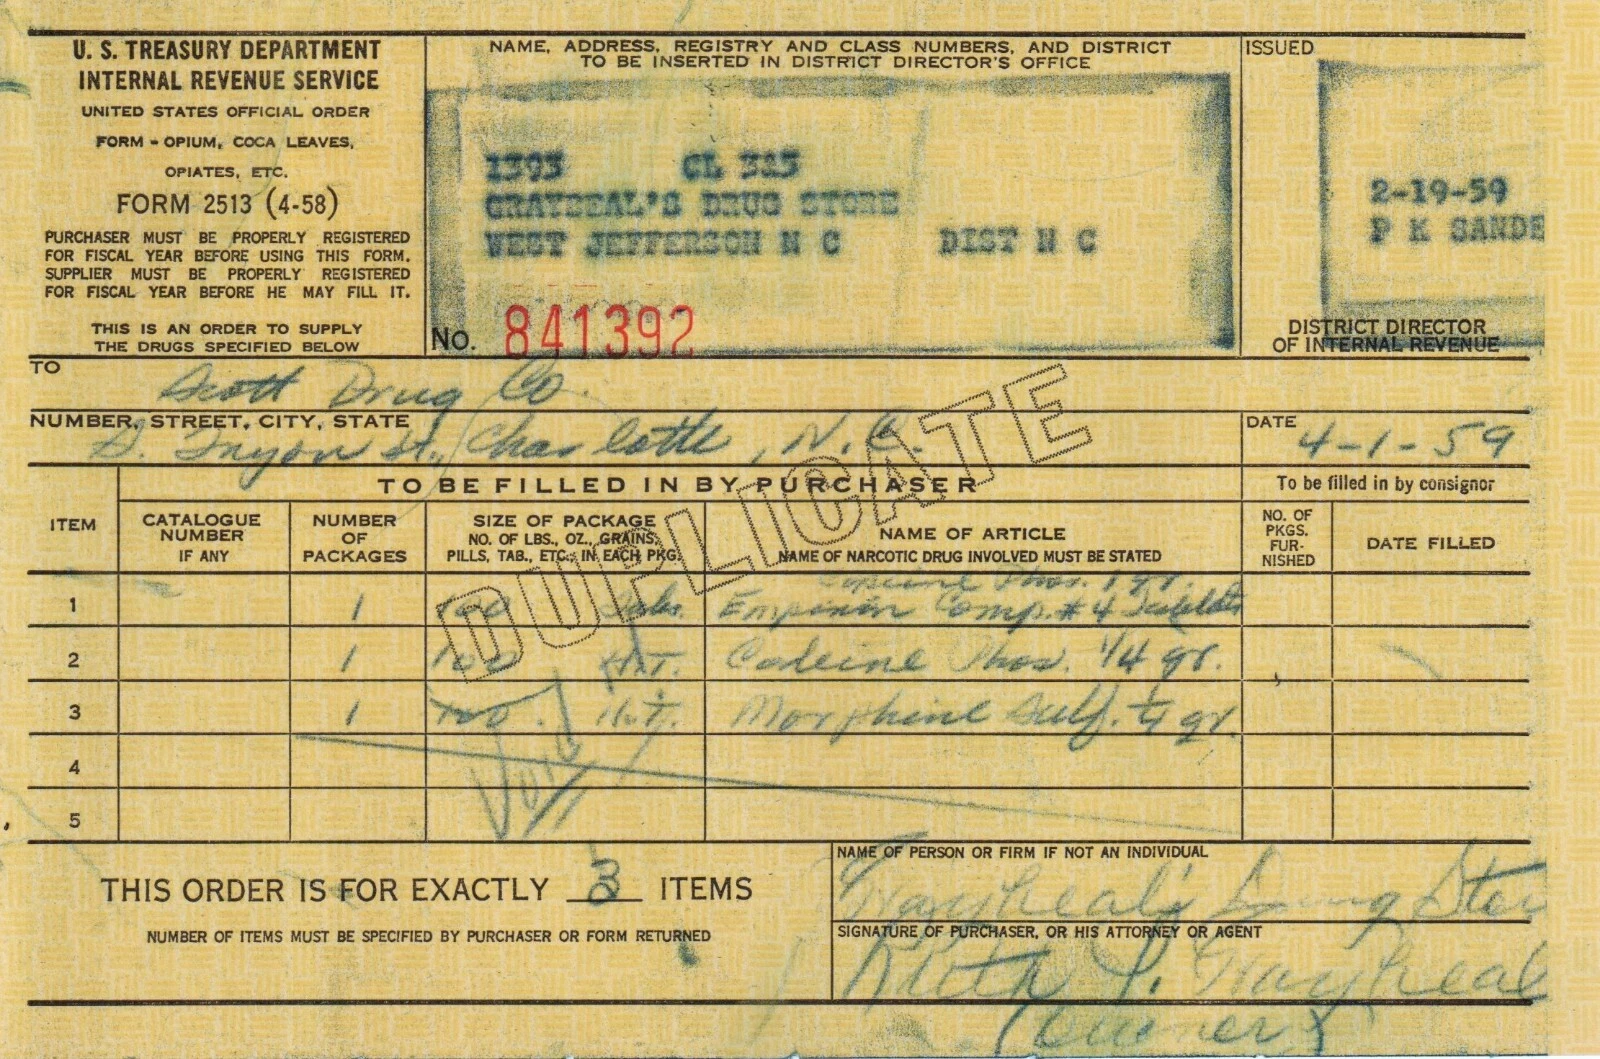 U. S. TREASURY DEPARTMENT
INTERNAL REVENUE SERVICE
UNITED STATES OFFICIAL ORDER
FORM - OPIUM, COCA LEAVES,
OPIATES, ETC.
FORM 2513 (4-58)
PURCHASER MUST BE PROPERLY REGISTERED
FOR FISCAL YEAR BEFORE USING THIS FORM.
SUPPLIER MUST BE PROPERLY REGISTERED
FOR FISCAL YEAR BEFORE HE MAY FILL IT.
THIS IS AN ORDER TO SUPPLY
THE DRUGS SPECIFIED BELOW
NAME, ADDRESS, REGISTRY AND CLASS NUMBERS, AND DISTRICT
TO BE INSERTED IN DISTRICT DIRECTOR'S OFFICE
1393 CL 3&5
GRAYBEAL'S DRUG STORE
WEST JEFFERSON N C DIST N C
No. 841392
ISSUED
2-19-59
P K SANDE
DISTRICT DIRECTOR
OF INTERNAL REVENUE
TO
Scott Drug Co.
NUMBER, STREET, CITY, STATE
S. Tryon St., Charlotte, N.C.
DATE
4-1-59
DUPLICATE
TO BE FILLED IN BY PURCHASER
To be filled in by consignor
ITEM
CATALOGUE
NUMBER
IF ANY
NUMBER
OF
PACKAGES
SIZE OF PACKAGE
NO. OF LBS., OZ., GRAINS,
PILLS, TAB., ETC., IN EACH PKG.
NAME OF ARTICLE
NAME OF NARCOTIC DRUG INVOLVED MUST BE STATED
NO. OF
PKGS.
FUR-
NISHED
DATE FILLED
Codeine Phos. 1 gr.
1 1 100 Tabs. Empirin Comp. #4 Tablets
2 1 100 H.T. Codeine Phos. 1/4 gr.
3 1 100 H.T. Morphine Sulf. gr.
Void
4
5
THIS ORDER IS FOR EXACTLY 3 ITEMS
NUMBER OF ITEMS MUST BE SPECIFIED BY PURCHASER OR FORM RETURNED
NAME OF PERSON OR FIRM IF NOT AN INDIVIDUAL
Graybeal's Drug Stor
SIGNATURE OF PURCHASER, OR HIS ATTORNEY OR AGENT
Ruth J. Graybeal
(Owner)